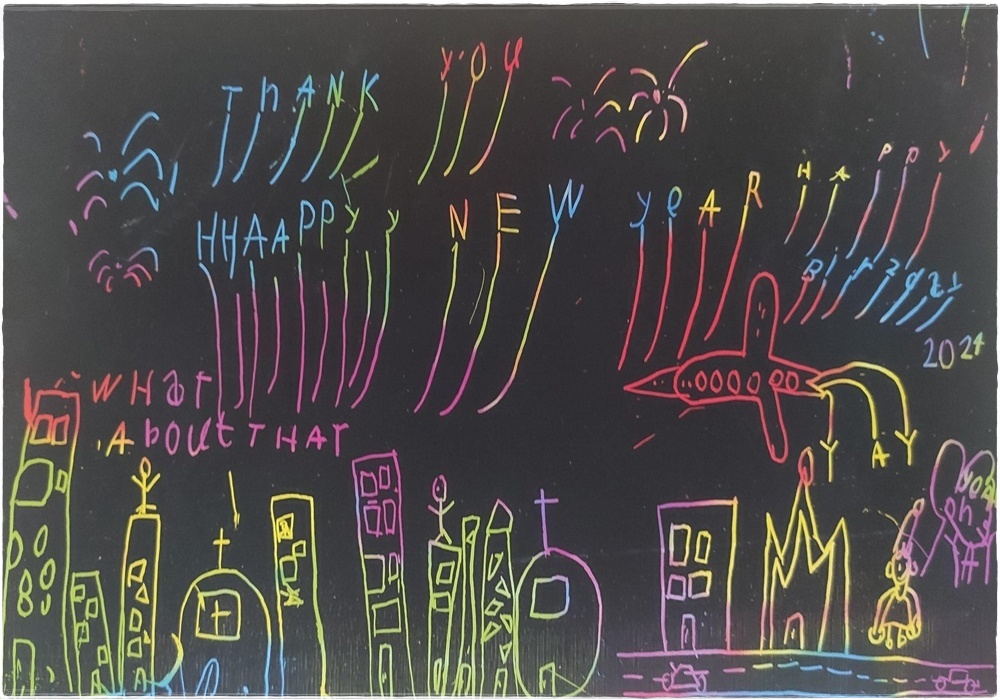 Thank you
HHAAPPyy NEW yeAR
HAPPY
2024
WHat
About THAT
YAY